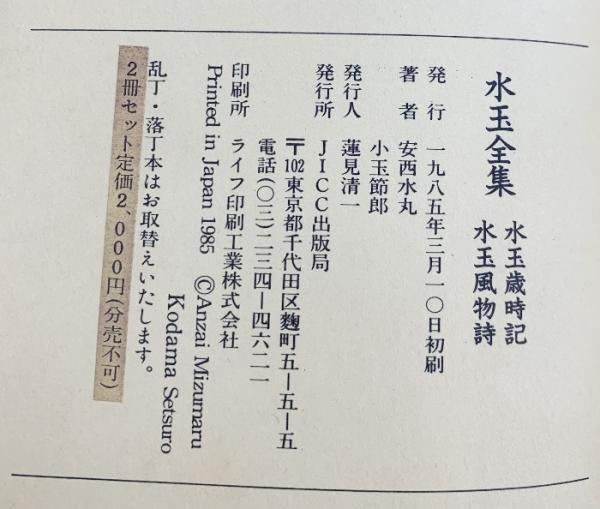 水玉全集
水玉歳時記
水玉風物詩
発行 一九八五年三月一〇日初刷
著者 安西水丸
小玉節郎
発行人 蓮見清一
発行所 JICC出版局
〒102東京都千代田区麴町五ー五ー五
電話(〇三)二三四ー四六二一
印刷所 ライフ印刷工業株式会社
Printed in Japan 1985 ©Anzai Mizumaru
Kodama Setsuro
乱丁・落丁本はお取替えいたします。
2冊セット定価2、000円(分売不可)